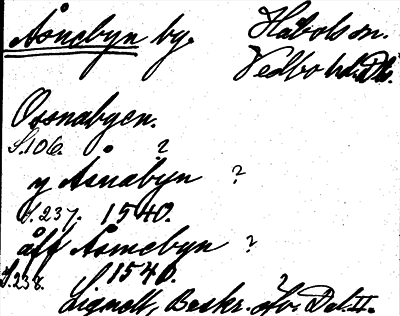 Åsnebyn by. Håbols sn.
Vedbo hd. Dls.
Ossnabyen.
S. 106. ?
y Åsnäbyn ?
S. 237. 1540.
åff Åsnebyn ?
S. 238. S. 1540.
Lignell, Beskr. öfv. Dal. II.